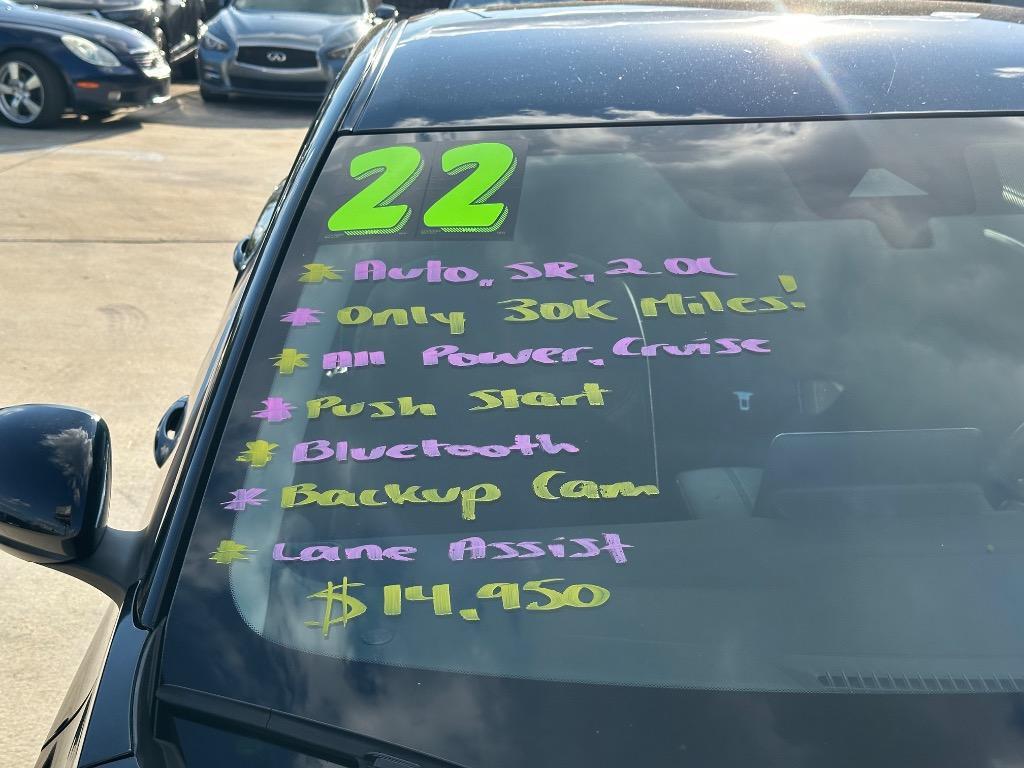 22
* Auto, SR, 2.0L
* Only 30K Miles!
* All Power, Cruise
* Push Start
* Bluetooth
* Backup Cam
* Lane Assist
$14,950